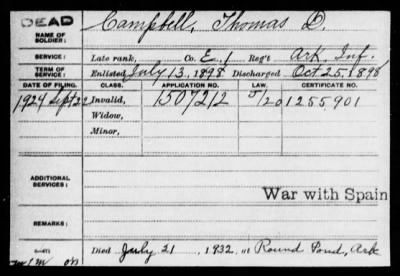 DEAD
NAME OF SOLDIER: Campbell, Thomas D.
SERVICE: Late rank, Co. E, 1 Reg't Ark. Inf.
TERM OF SERVICE: Enlisted July 13, 1898 Discharged Oct 25, 1898
DATE OF FILING. CLASS. APPLICATION NO. LAW. CERTIFICATE NO.
1924 Sept 22 Invalid, 1507212 5/20 1255.901
Widow,
Minor,
ADDITIONAL SERVICES:
War with Spain
REMARKS:
Died July 21, 1932, at Round Pond, Ark